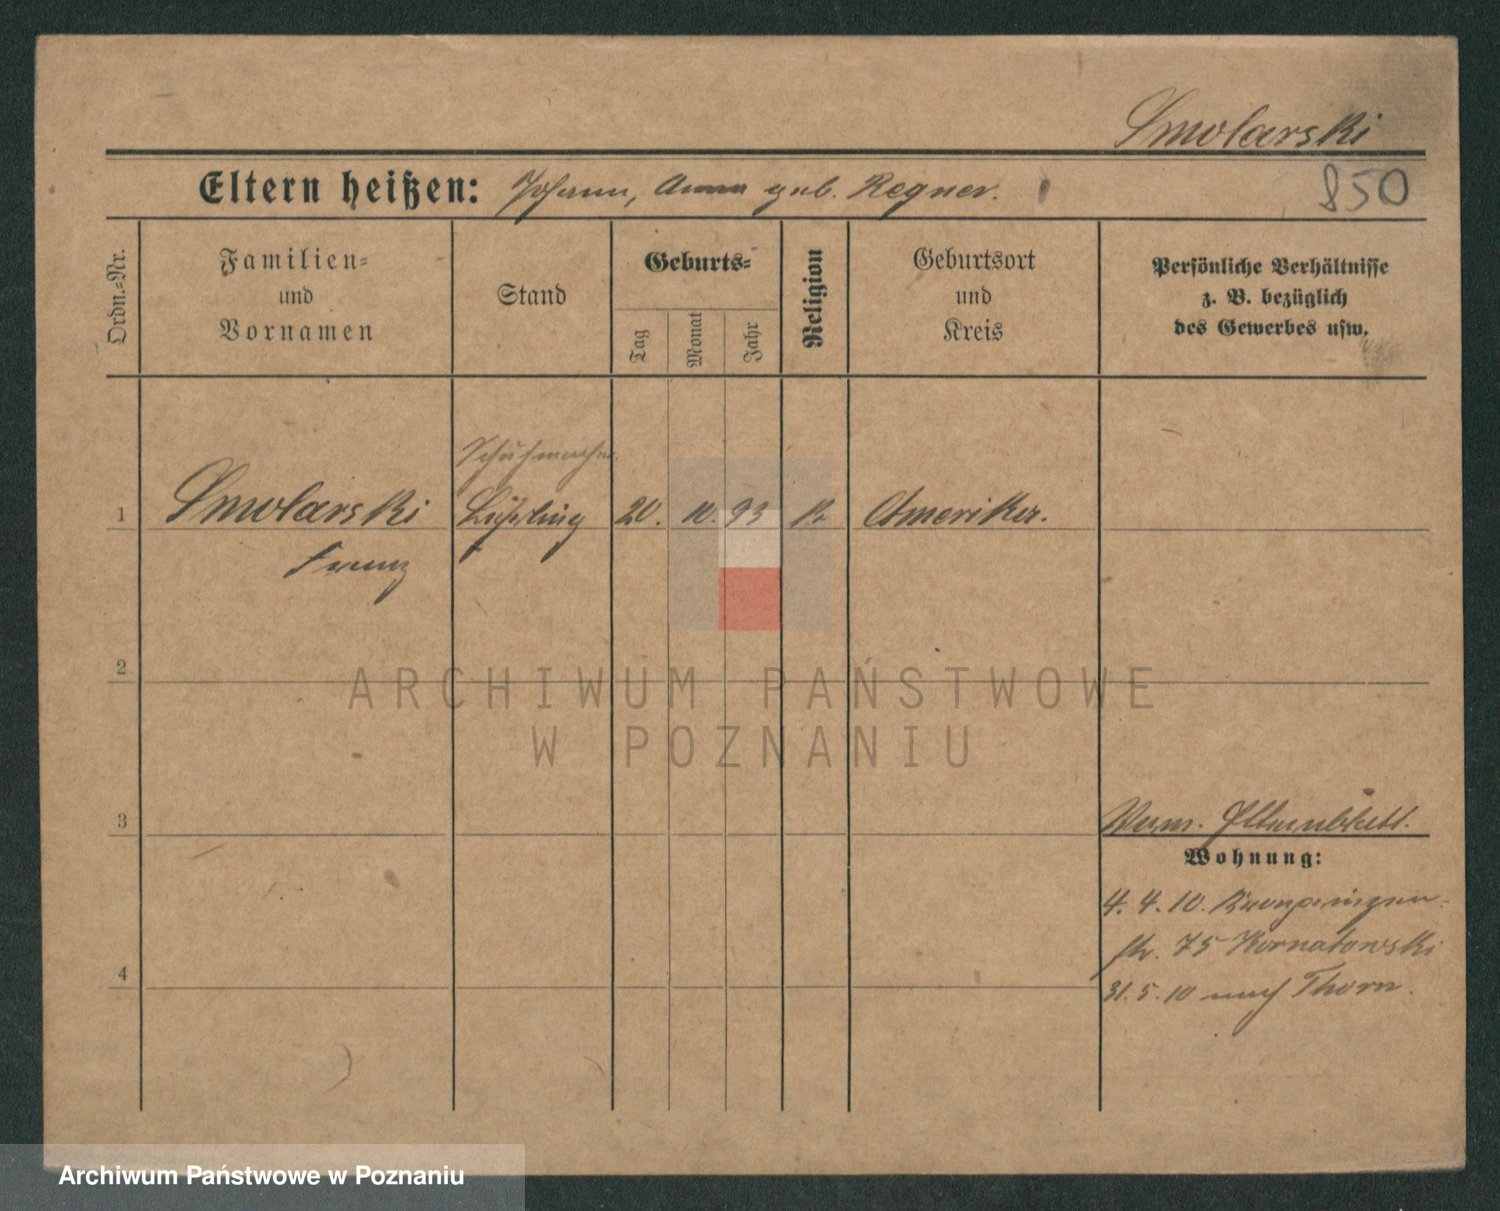 Smolarski
Eltern heißen: Johann, Anna geb. Regner.
850
Ordn.=Nr.
Familien=
und
Vornamen
Stand
Geburts=
Tag
Monat
Jahr
Religion
Geburtsort
und
Kreis
Persönliche Verhältnisse
z. B. bezüglich
des Gewerbes usw.
Schuhmacher
1 Smolarski Lehrling 20. 10. 93 k. Amerika.
Franz
2
ARCHIWUM PAŃSTWOWE
W POZNANIU
3
Verm. Elternblatt.
Wohnung:
4. 4. 10. Kronprinzen-
str. 75 Kornatowski
4
31. 5. 10 nach Thorn.
Archiwum Państwowe w Poznaniu